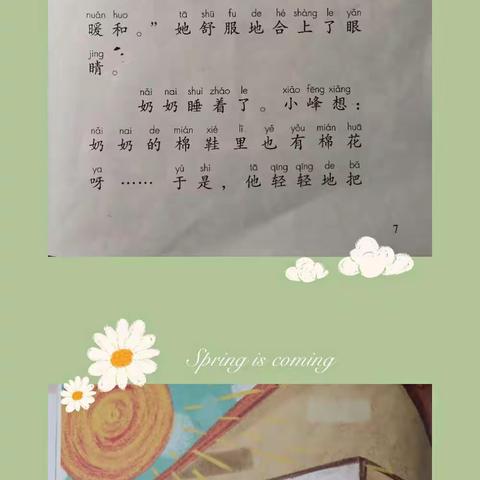 nuǎn huo tā shū fu de hé shàng le yǎn
暖和。”她舒服地合上了眼
jing
睛。
nǎi nai shuì zháo le xiǎo fēng xiǎng
奶奶睡着了。小峰想：
nǎi nai de mián xié lǐ yě yǒu mián huā
奶奶的棉鞋里也有棉花
ya yú shì tā qīng qīng de bǎ
呀……于是，他轻轻地把
7
Spring is coming